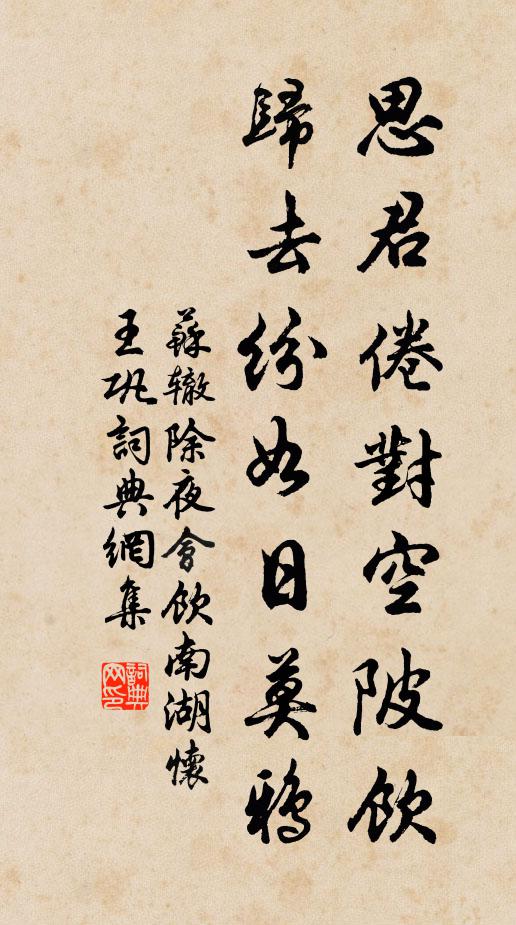 思君倦對空陂飲
歸去紛如日莫鴉
蘇辙除夜會飲南湖懷
王巩詞典網集
詞典
网印